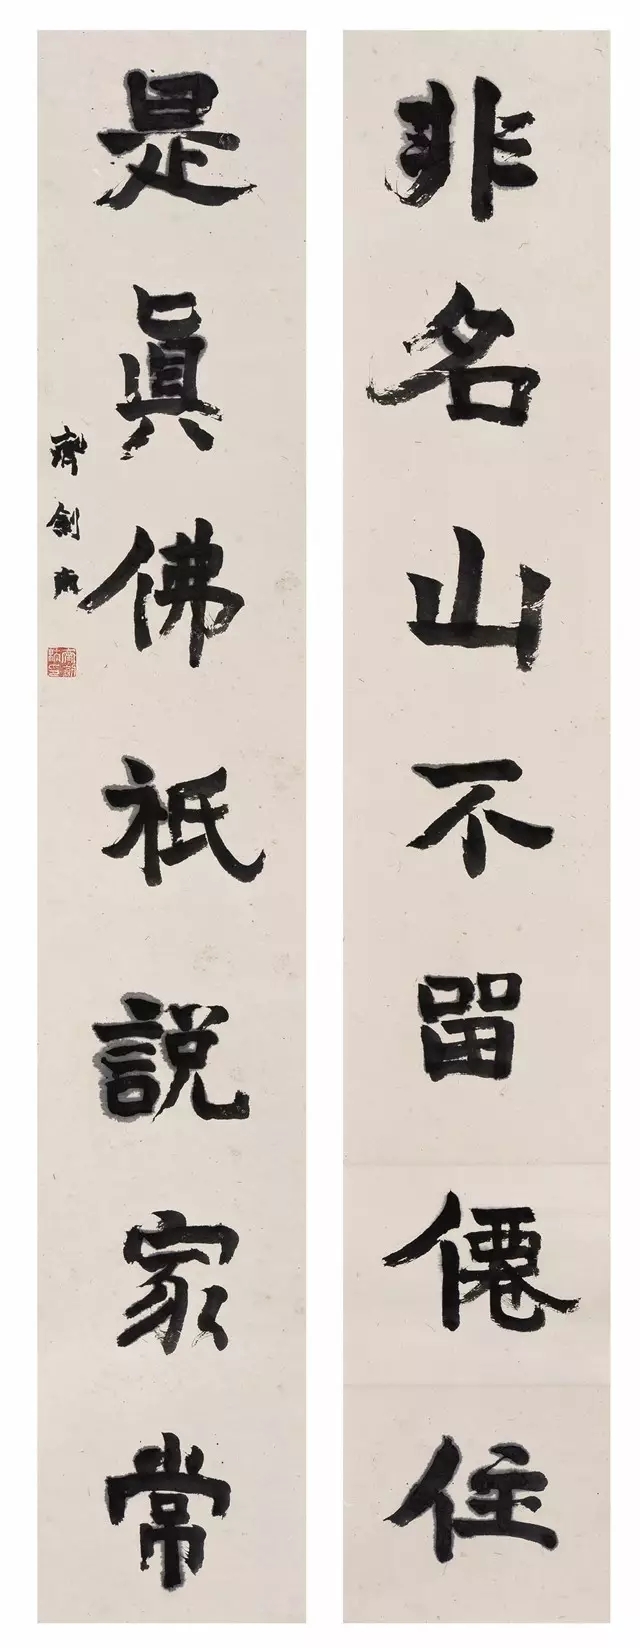 非名山不留僊住
是真佛祇説家常
齊剑南